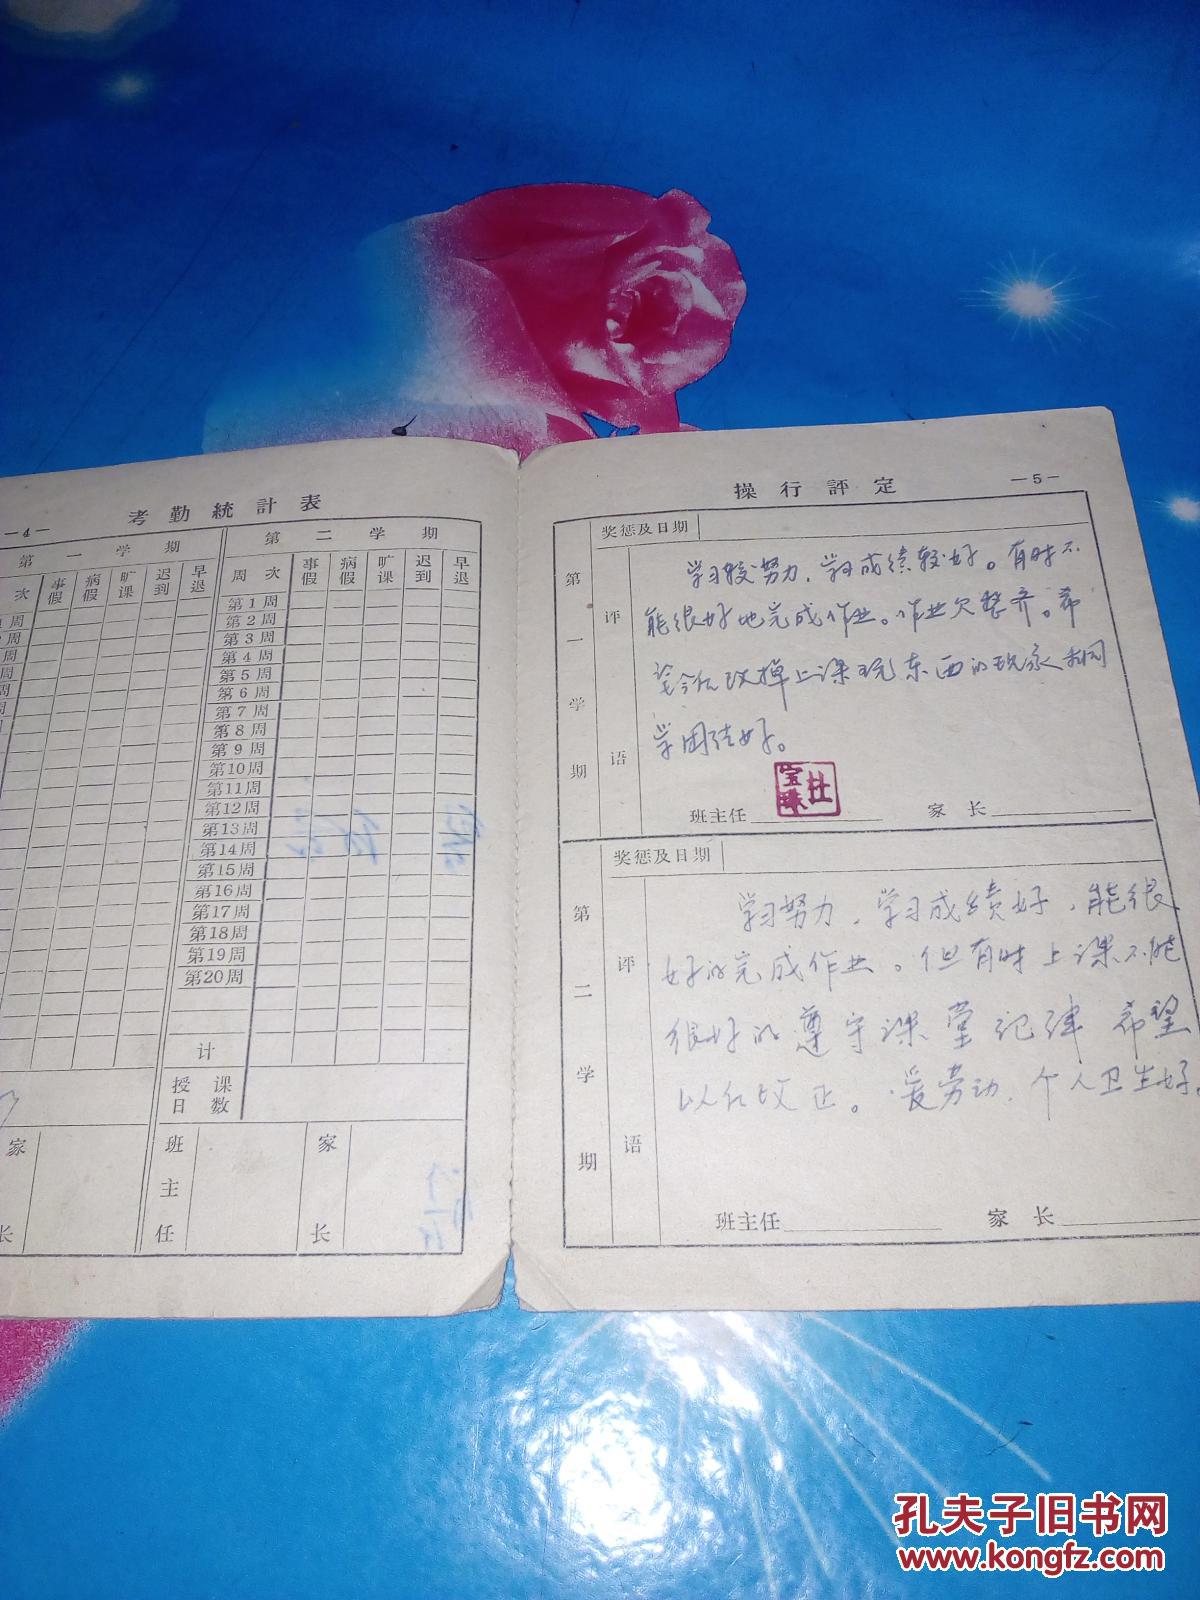 —4—
考勤統計表
第一学期
次 事假 病假 旷课 迟到 早退
第二学期
周次 事假 病假 旷课 迟到 早退
第1周
第2周
第3周
第4周
第5周
第6周
第7周
第8周
第9周
第10周
第11周
第12周
第13周
第14周
第15周
第16周
第17周
第18周
第19周
第20周
计
授课日数
家长
班主任
家长
操行評定
—5—
第一学期
奖惩及日期
评语
学习较努力,学习成绩较好。有时不
能很好地完成作业。作业欠整齐。希
望今后改掉上课玩东西的现象和同
学团结好。
班主任
杜宝珠
家长
第二学期
奖惩及日期
评语
学习努力,学习成绩好,能很
好的完成作业。但有时上课不能
很好的遵守课堂纪律 希望
以后改正。爱劳动,个人卫生好。
班主任
家长
孔夫子旧书网
www.kongfz.com